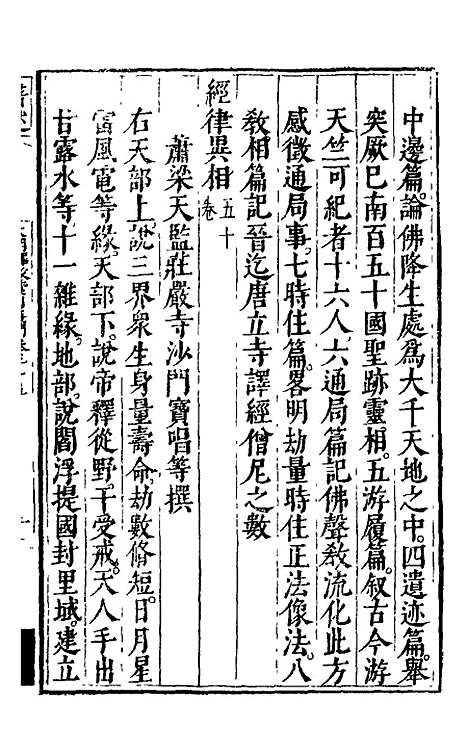 中邊篇。論佛降生處爲大千天地之中。四遺迹篇。舉
突厥巳南百五十國聖跡靈相。五游履篇。叙古今游
天竺可紀者十六人。六通局篇記佛聲敎流化此方
感徵通局事。七時住篇。畧明劫量時住正法像法。八
敎相篇記晉迄唐立寺譯經僧尼之數
經律異相 五十卷
蕭梁天監莊嚴寺沙門寶唱等撰
右天部上。說三界衆生身量壽命。劫數脩短。日月星
雷風電等緣。天部下。說帝釋從野。干受戒。天人手出
甘露水等十一雜緣。地部。說閻浮提國封里域。建立